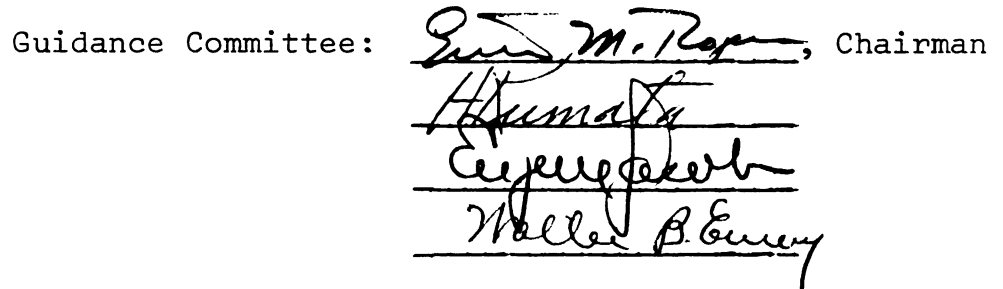 Guidance Committee: Erwin M. Roper, Chairman
H Kumata
Eugene Jacob
Walter B. Emery